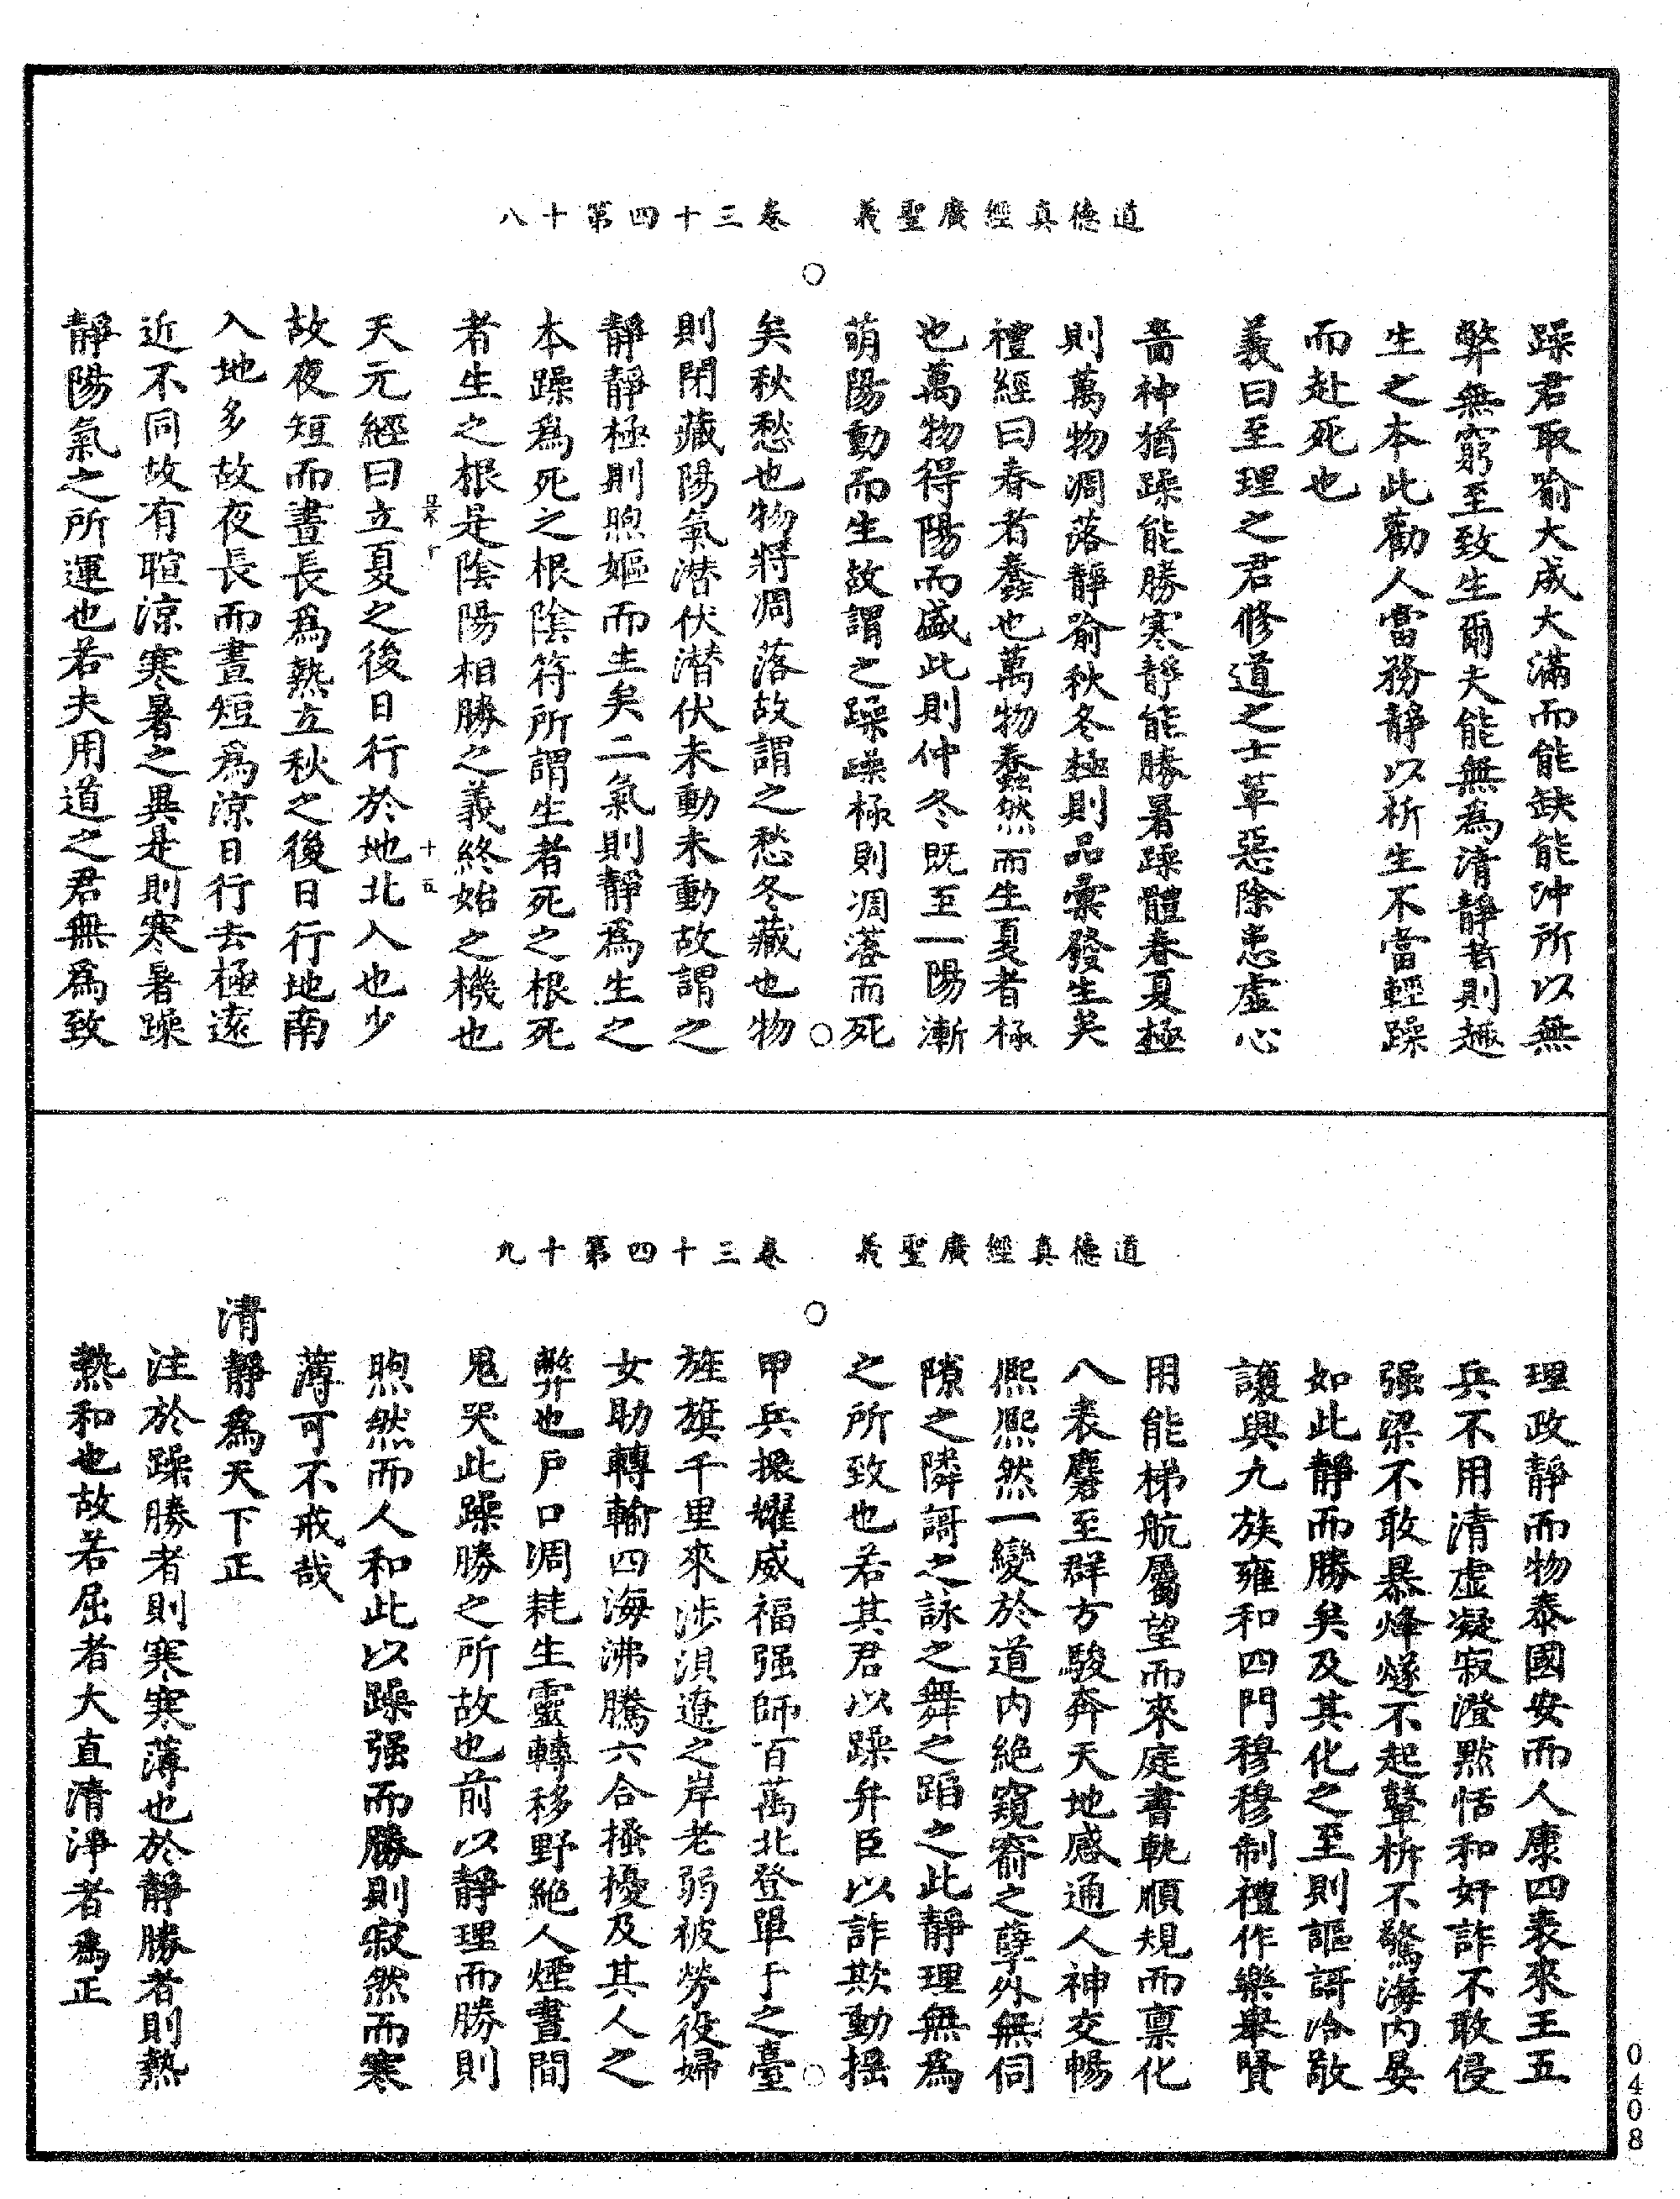 道德真經廣聖義　卷三十四第十八
躁君取喻大成大滿而能缺能沖所以無
弊無窮至致生爾夫能無為清靜者則趣
生之本此勸人當務靜以祈生不當輕躁
而赴死也
義曰至理之君修道之士革惡除恚虛心
嗇神猶躁能勝寒靜能勝暑躁體春夏極
則萬物凋落靜喻秋冬極則品彙發生矣
禮經曰春者蠢也萬物蠢然而生夏者極
也萬物得陽而盛此則仲冬既至一陽漸
萌陽動而生故謂之躁躁極則凋落而死
矣秋愁也物將凋落故謂之愁冬藏也物
則閉藏陽氣潛伏潛伏未動未動故謂之
靜靜極則煦嫗而生矣二氣則靜為生之
本躁為死之根陰符所謂生者死之根死
者生之根是陰陽相勝之義終始之機也
十五
天元經曰立夏之後日行於地北入也少
故夜短而晝長為熱立秋之後日行地南
入地多故夜長而晝短為涼日行去極遠
近不同故有暄涼寒暑之異是則寒暑躁
靜陽氣之所運也若夫用道之君無為致
道德真經廣聖義　卷三十四第十九
理政靜而物泰國安而人康四表來王五
兵不用清虛凝寂澄默恬和奸詐不敢侵
强梁不敢暴烽燧不起鼙柝不驚海內晏
如此靜而勝矣及其化之至則謳謌洽敢
讓興九族雍和四門穆穆制禮作樂舉賢
用能梯航屬望而來庭書軌順規而稟化
八表麏至群方駿奔天地感通人神交暢
熈熈然一變於道內絕窺窬之孽外無伺
隙之隣謌之詠之舞之蹈之此靜理無為
之所致也若其君以躁弁臣以詐欺動搖
甲兵振耀威福强師百萬北登單于之臺
旌旗千里來涉浿遼之岸老弱被勞役婦
女助轉輸四海沸騰六合搔擾及其人之
弊也戶口凋耗生靈轉移野絕人煙晝間
鬼哭此躁勝之所故也前以靜理而勝則
煦然而人和此以躁强而勝則寂然而寒
薄可不戒哉
清靜為天下正
注於躁勝者則寒寒薄也於靜勝者則熱
熱和也故若屈者大直清淨者為正
0408